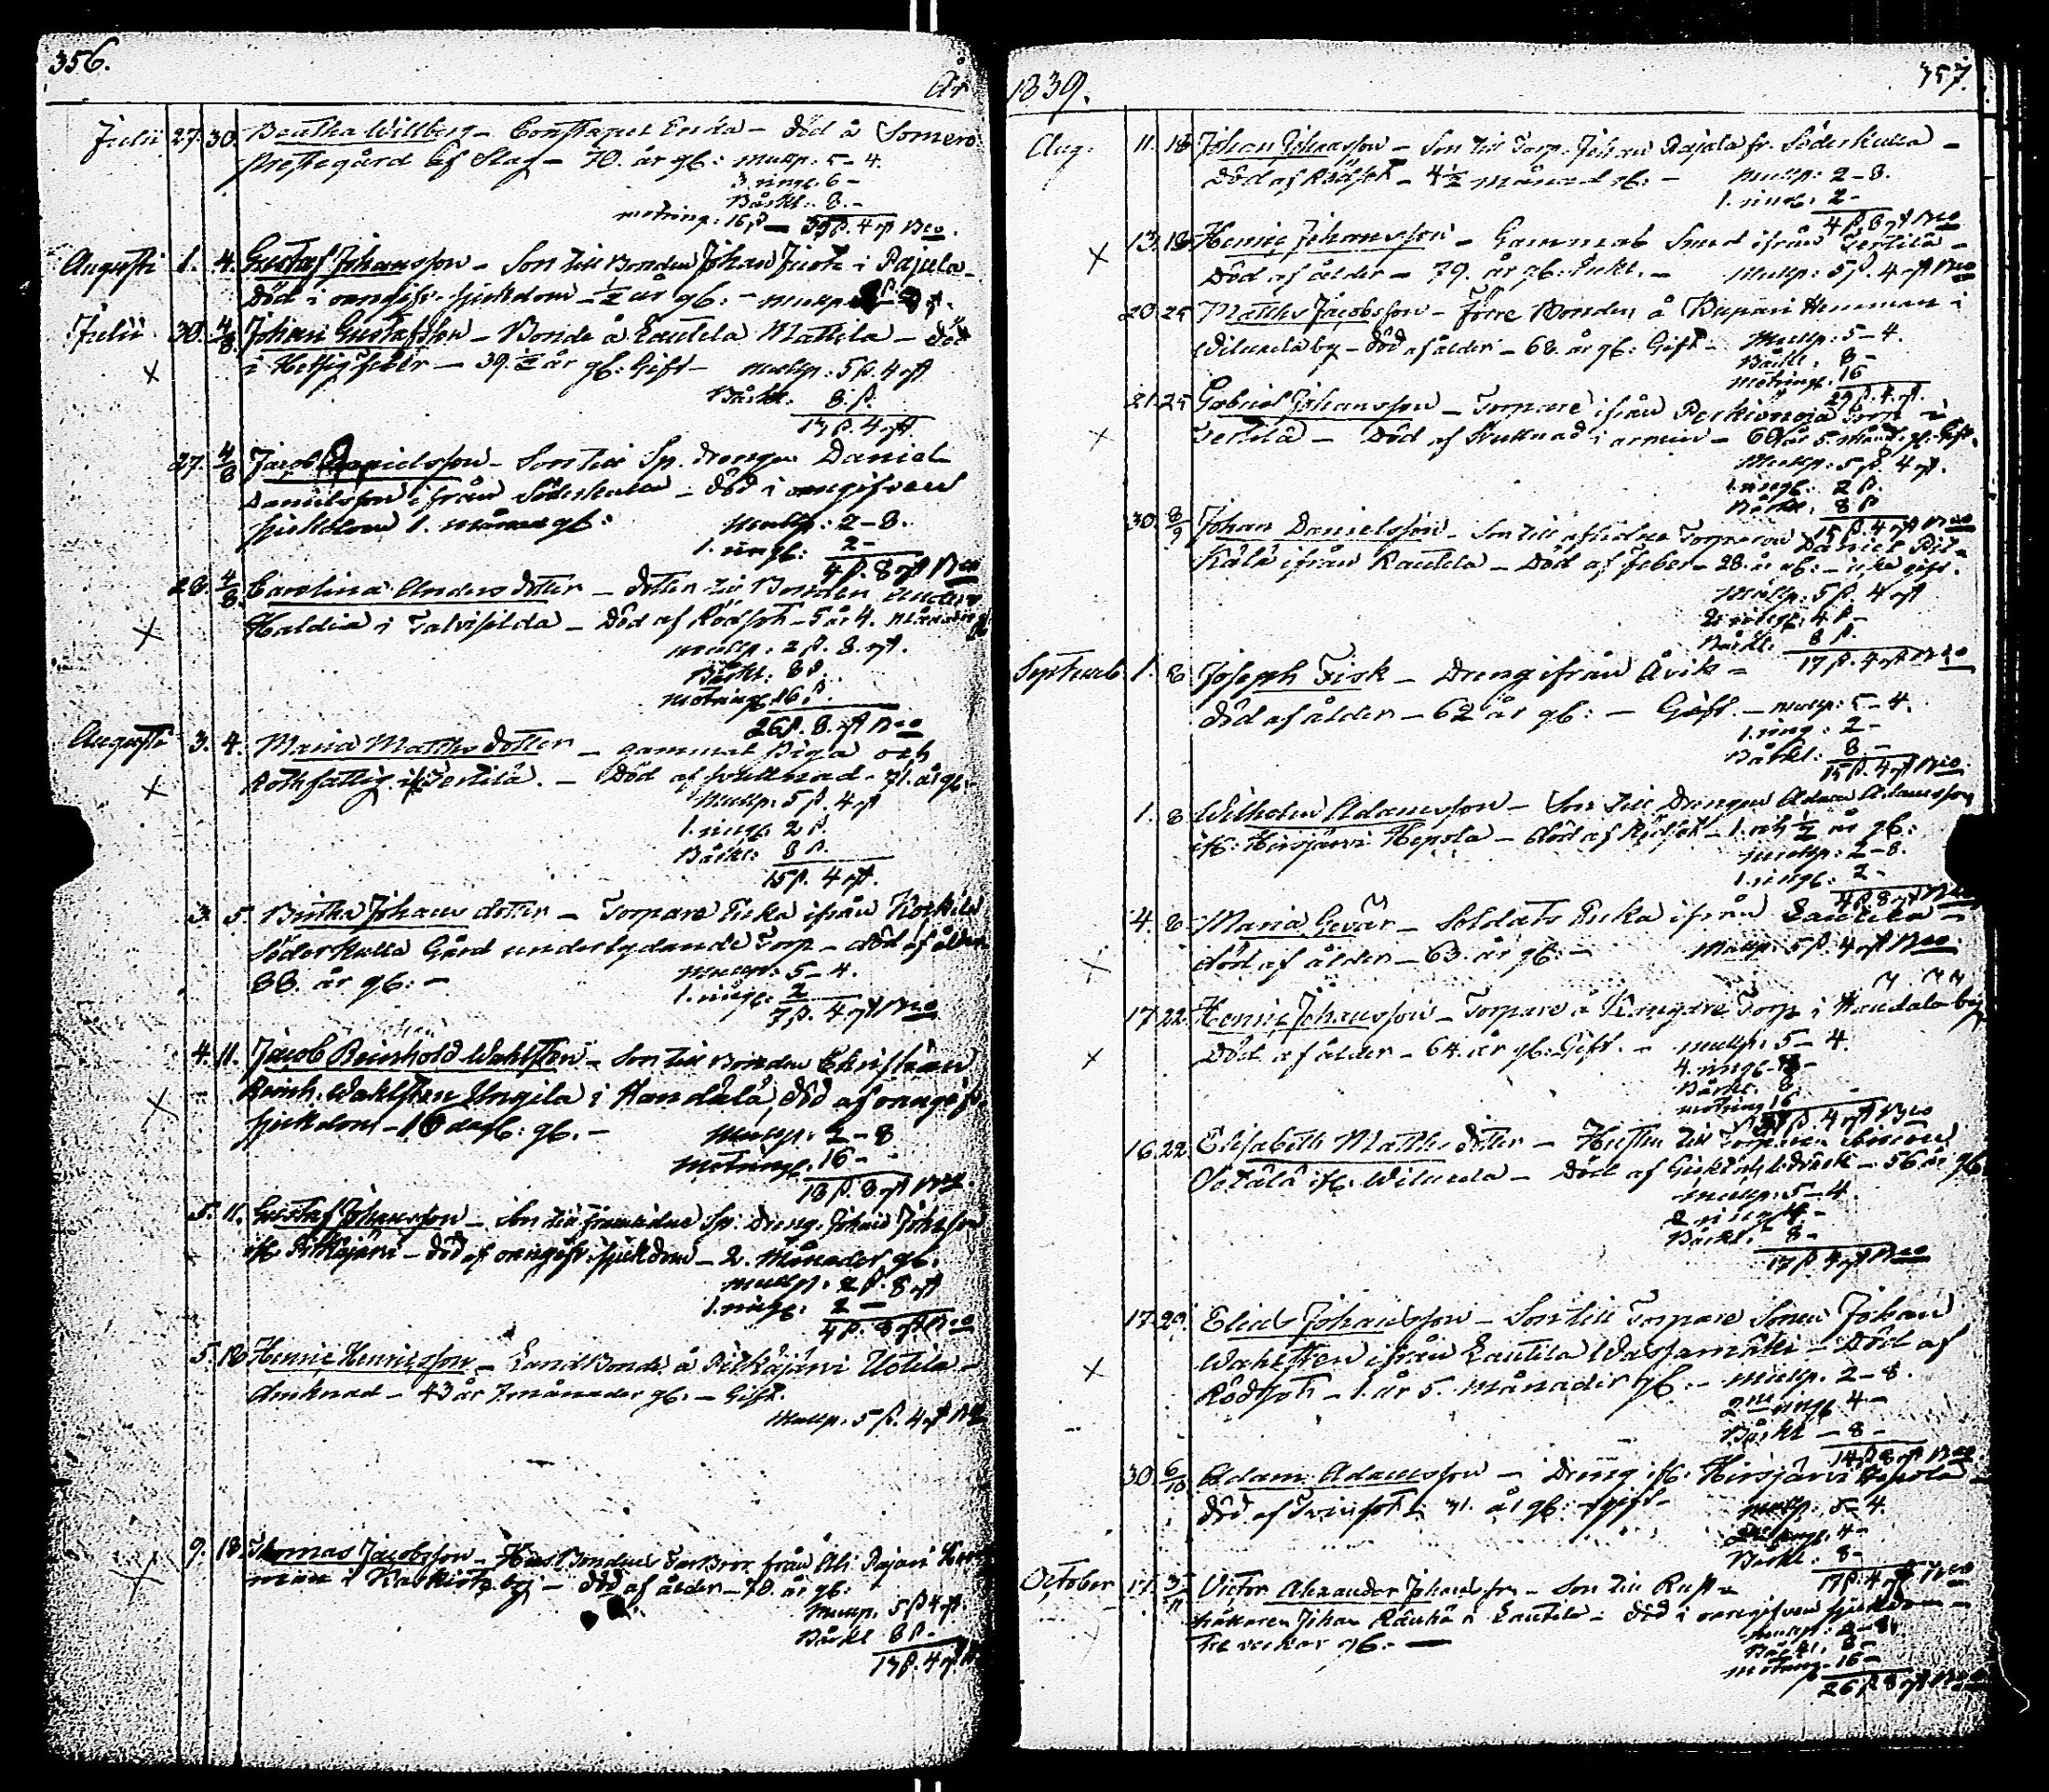 356.
År
Julii 27. 30. Beatha Willberg - Constapel Enka - död å Somero
Prestegård af Slag - 70. år gl: mullp: 5 - 4.
3. ringl. 6 -
Bårkl: 8. -
motring: 16 β - 35 β. 4 rst Bco.
Augusti 1. 4. Gustaf Johansson - Son till Bonden Johan Juota i Pajula -
Död i oangifv. sjukdom - ½ år gl: - mullp
Julii 30. 4/8 Johan Gustafsson - Bonde å Lautela Mattila - död
i Hetsig feber - 39 ½ år gl: Gift - mullp: 5 β. 4 rst
Bårkl. 8. β.
13 β. 4 rst
27. 4/8 Jacob Danielsson - Son till Sp. drengen Daniel
Danielsson ifrån Söderkulla - död i oangifven
sjukdom 1. månad gl: mullp: 2 - 8.
1. ringl: 2 -
4 β. 8 rst Bco
28. 4/8. Carolina Anders dotter - dotter till Bonden Anders
Haldia i Talvisilda - Död af Rödsot - 5 år 4. månader gl
mullp. 2 β. 8. rst.
Bårkl: 8 β.
motringl. 16 β.
26 β. 8. rst Bco
Augusti 3. 4. Maria Matths dotter - gammal Piga och
Rothfattig ifr Terttilä. - Död af svullnad - 71. år gl. -
Mullp. 5 β. 4 rst
1. ringl: 2 β.
Bårkl: 8 β.
15 β. 4 rst.
3. 5. Birtha Johans dotter - Torpare Enka ifrån Korkila
Söderkulla Gård underlydande Torp - död af ålder
88. år gl: - Mullp: 5 - 4.
1. ringl: 2
7 β. 4 rst Bco
4. 11. Jacob Reinhold Wahlsten - Son till Bonden Christian
Reinh. Wahlsten Ungila i Kandala, död af oangifv.
sjukdom - 16 dag: gl. - Mullp. 2 - 8
Motringl. 16 -
18 β. 8 rst Bco.
5. 11. Gustaf Johansson - Son till Sp: dreng. Johan Johansson
ifr. Pitkäjärvi - död af oangifv. sjukdom - 2. Månader gl.
Mullp. 2 β. 8 rst
1. ringl: 2 -
4 β. 8 rst Bco
5. 18 Henric Henricsson - Landbonde å Pitkäjärvi Ustila -
- 43 år 7 månader gl. - Gift.
Mullp. 5 β. 4 rst Bco
9. 18. Thomas Jacobsson - Husbondens Farbror från Ali Pajari Hem
man i Kaskisto by - död af ålder - 78. år gl:
Mullp. 5 β 4 rst.
Bårkl 8 β. -
13 β. 4 rst
1839. 357.
Aug. 11. 18 Johan Johansson - Son till Torp. Johan Rajala fr. Söderkulla -
Död af Rödsot - 4 ½ månad gl: - Mullp: 2 - 8.
1. ringl: 2 -
4 β. 8 rst Bco
13. 18 Henric Johansson - Gammal Smed ifrån Terttilä -
Död af ålder - 79. år gl: Enkl. - Mullp: 5 β. 4 rst Bco
20. 25 Matths Jacobsson - Förre Bonden å Kupari Hemman i
Viluksela by - död af ålder - 68. år gl: Gift - Mullp: 5 - 4.
Bårkl. 8 -
Motringl. 16
29 β. 4 rst.
21. 25 Gabriel Johansson - Torpare ifrån Perkionoja Torp i
Terttilä - Död af Svullnad i armen - 60 år 5 månad. gl. Gift.
Mullp: 5 β. 4 rst.
1. ringl: 2 β.
Bårkl. 8 β
15 β. 4 rst Bco
30. 8/9 Johan Danielsson - Son till aflidne Torparen Daniel Pit-
kälä ifrån Rautela - Död af feber - 28. år gl: - icke gift.
Mullp: 5 β. 4 rst
2. ringl: 4 β -
Bårkl. 8 β.
17 β. 4 rst Bco
Septemb. 1. 8 Joseph Fisk - Dreng ifrån Åvik -
död af ålder - 62 år gl: - Gift. - Mullp: 5 - 4.
1. ring: 2 -
Bårkl: 8 -
15 β. 4 rst Bco.
1. 8 Wilhelm Adamsson - Son till Drengen Adam Adamsson
ifr: Hirsjärvi Hepola - död af Rödsot - 1. och ½ år gl:
Mullp: 2 - 8.
1. ringl: 2 -
4 β. 8 rst Bco
4. 8 Maria Gevär - Soldats Enka ifrån Lautela -
död af ålder - 63. år gl: - Mullp: 5 β. 4 rst Bco.
17. 22. Henric Johansson - Torpare å Kangare Torp i Kandala by
Död af ålder - 64. år gl: Gift. - Mullp. 5 - 4.
4. ringl. 8 -
Bårkl. 8. -
motring 16
37 β. 4 rst Bco
16. 22. Elisabeth Matths dotter - Hustru till Torparen Simon
Ootälä ifr. Viluksela - Död af - 56 år gl.
Mullp: 5 - 4.
2 ringl 4. -
Bårkl. 8 -
17 β 4 rst Bco
17. 29. Elias Johansson - Son till Torpare Sonen Johan
Wahlsten ifrån Lautela Wassamäki - Död af
Rödsot - 1. år 5. Månader gl: - Mullp. 2 - 8.
2ne ringl 4 -
Bårkl - 8 -
14 β 8 rst Bco
30. 6/10 Adam Adamsson - Dreng ifr. Hirsjärvi Hepola -
död af Tvinsot - 31. år gl: - gift - Mullp. 5 - 4.
2ne ringl. 4 -
Bårkl. 8 -
17 β. 4 rst Bco
October 17. 3/11 Victor Alexander Johansson - Son till Rust-
hållaren Johan Rauhå i Lautela - död i oangifven sjukdom -
tre veckor gl. - Mullp: 2 - 8.
Bårkl. 8 -
motring. 16 -
26 β 8 rst Bco